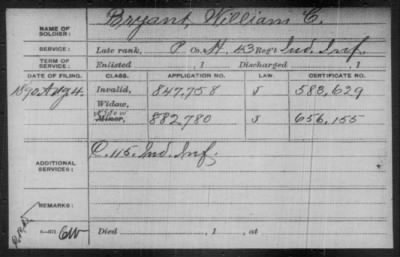 NAME OF SOLDIER: Bryant, William C.
SERVICE: Late rank, P Co. H, 43 Reg't Ind. Inf.
TERM OF SERVICE: Enlisted , 1 Discharged , 1
DATE OF FILING. CLASS. APPLICATION NO. LAW. CERTIFICATE NO.
1890 Aug 4. Invalid, 847,758 J 583,629
Widow,
widow
Minor, 882,780 J 656,155
ADDITIONAL SERVICES: C. 115. Ind. Inf.
REMARKS:
Died , 1 , at